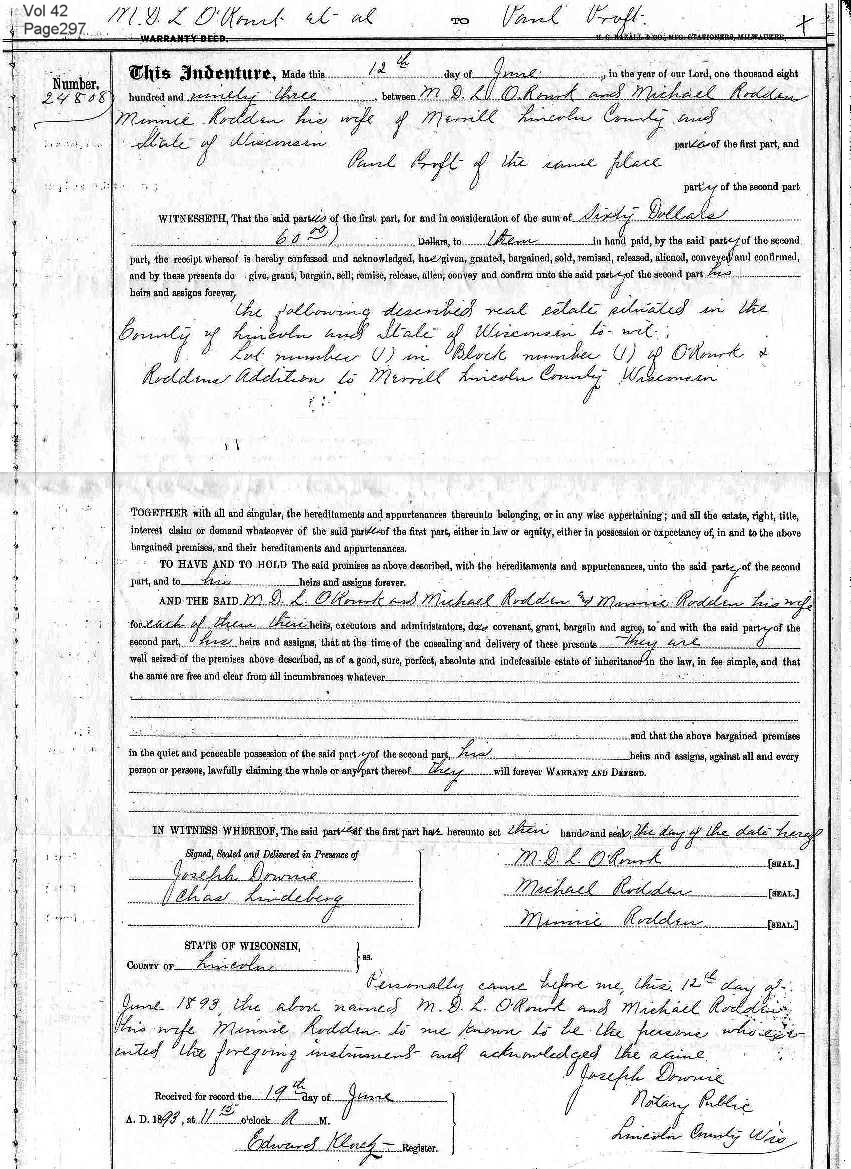 Vol 42
Page297
M. D. L O'Rourk et al TO Paul Proft.
WARRANTY DEED.
Number.
24808
This Indenture, Made this 12th day of June, in the year of our Lord, one thousand eight
hundred and ninety three, between M. D. L O'Rourk and Michael Rodden
Minnie Rodden his wife of Merrill Lincoln County and
State of Wisconsin
parties of the first part, and
Paul Proft of the same place
party of the second part
WITNESSETH, That the said parties of the first part, for and in consideration of the sum of Sixty Dollars
60 00) Dollars, to them in hand paid, by the said party of the second
part, the receipt whereof is hereby confessed and acknowledged, have given, granted, bargained, sold, remised, released, aliened, conveyed and confirmed,
and by these presents do give, grant, bargain, sell, remise, release, alien, convey and confirm unto the said party of the second part his
heirs and assigns forever,
the following described real estate situated in the
County of Lincoln and State of Wisconsin to-wit;
Lot number (1) in Block number (1) of O'Rourk &
Roddens Addition to Merrill Lincoln County Wisconsin
TOGETHER with all and singular, the hereditaments and appurtenances thereunto belonging, or in any wise appertaining; and all the estate, right, title,
interest claim or demand whatsoever of the said parties of the first part, either in law or equity, either in possession or expectancy of, in and to the above
bargained premises, and their hereditaments and appurtenances.
TO HAVE AND TO HOLD The said premises as above described, with the hereditaments and appurtenances, unto the said party of the second
part, and to his heirs and assigns forever.
AND THE SAID M. D. L O'Rourk and Michael Rodden & Minnie Rodden his wife
for each of them their heirs, executors and administrators, does covenant, grant, bargain and agree, to and with the said party of the
second part, his heirs and assigns, that at the time of the ensealing and delivery of these presents they are
well seized of the premises above described, as of a good, sure, perfect, absolute and indefeasible estate of inheritance in the law, in fee simple, and that
the same are free and clear from all incumbrances whatever
and that the above bargained premises
in the quiet and peaceable possession of the said party of the second part, his heirs and assigns, against all and every
person or persons, lawfully claiming the whole or any part thereof they will forever WARRANT AND DEFEND.
IN WITNESS WHEREOF, The said parties of the first part have hereunto set their hands and seals, the day of the date hereof
Signed, Sealed and Delivered in Presence of
Joseph Downie
Chas Lindeberg
M. D. L O'Rourk [SEAL.]
Michael Rodden [SEAL.]
Minnie Rodden [SEAL.]
STATE OF WISCONSIN,
COUNTY OF Lincoln ss.
Personally came before me, this 12th day of
June 1893, the above named M. D. L O'Rourk and Michael Rodden
his wife Minnie Rodden to me known to be the persons who exe-
cuted the foregoing instrument and acknowledged the same
Joseph Downie
Notary Public
Lincoln County Wis
Received for record the 19th day of June
A. D. 1893, at 11 15 o'clock A M.
Edward Register.